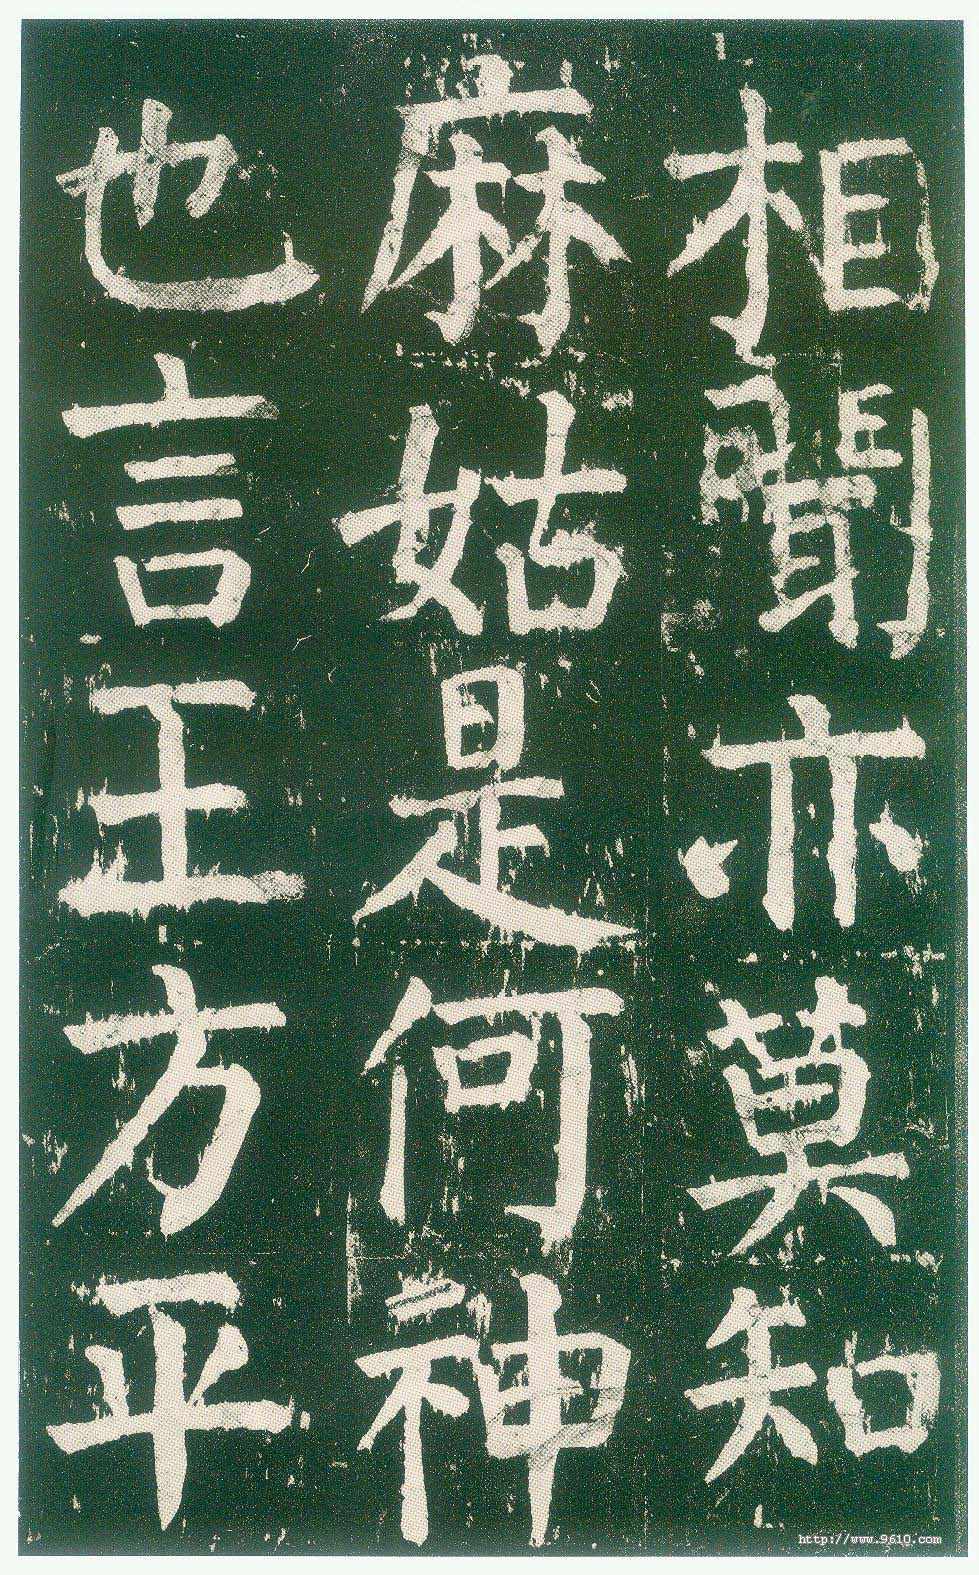 相聞亦莫知
麻姑是何神
也言王方平
http://www.9610.com